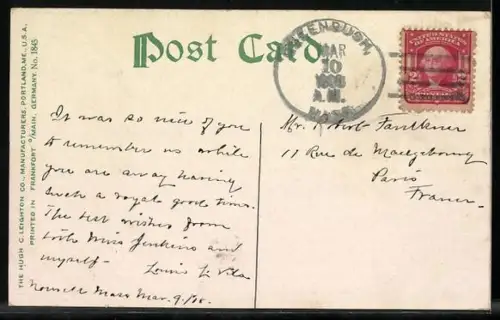 THE HUGH C. LEIGHTON CO., MANUFACTURERS, PORTLAND, ME., U.S.A.
PRINTED IN FRANKFORT o/MAIN, GERMANY. No. 1845
Post Card.
GREENBUSH,
MAR
10
A.M.
MASS.
It was so nice of you
to remember us while
you are away having
such a royal good time.
The best wishes from
both Miss Jenkins and
myself-
Louis
Mass Mar. 9/08.
Mr. Robert Faulkner
11 Rue de
Paris
France.